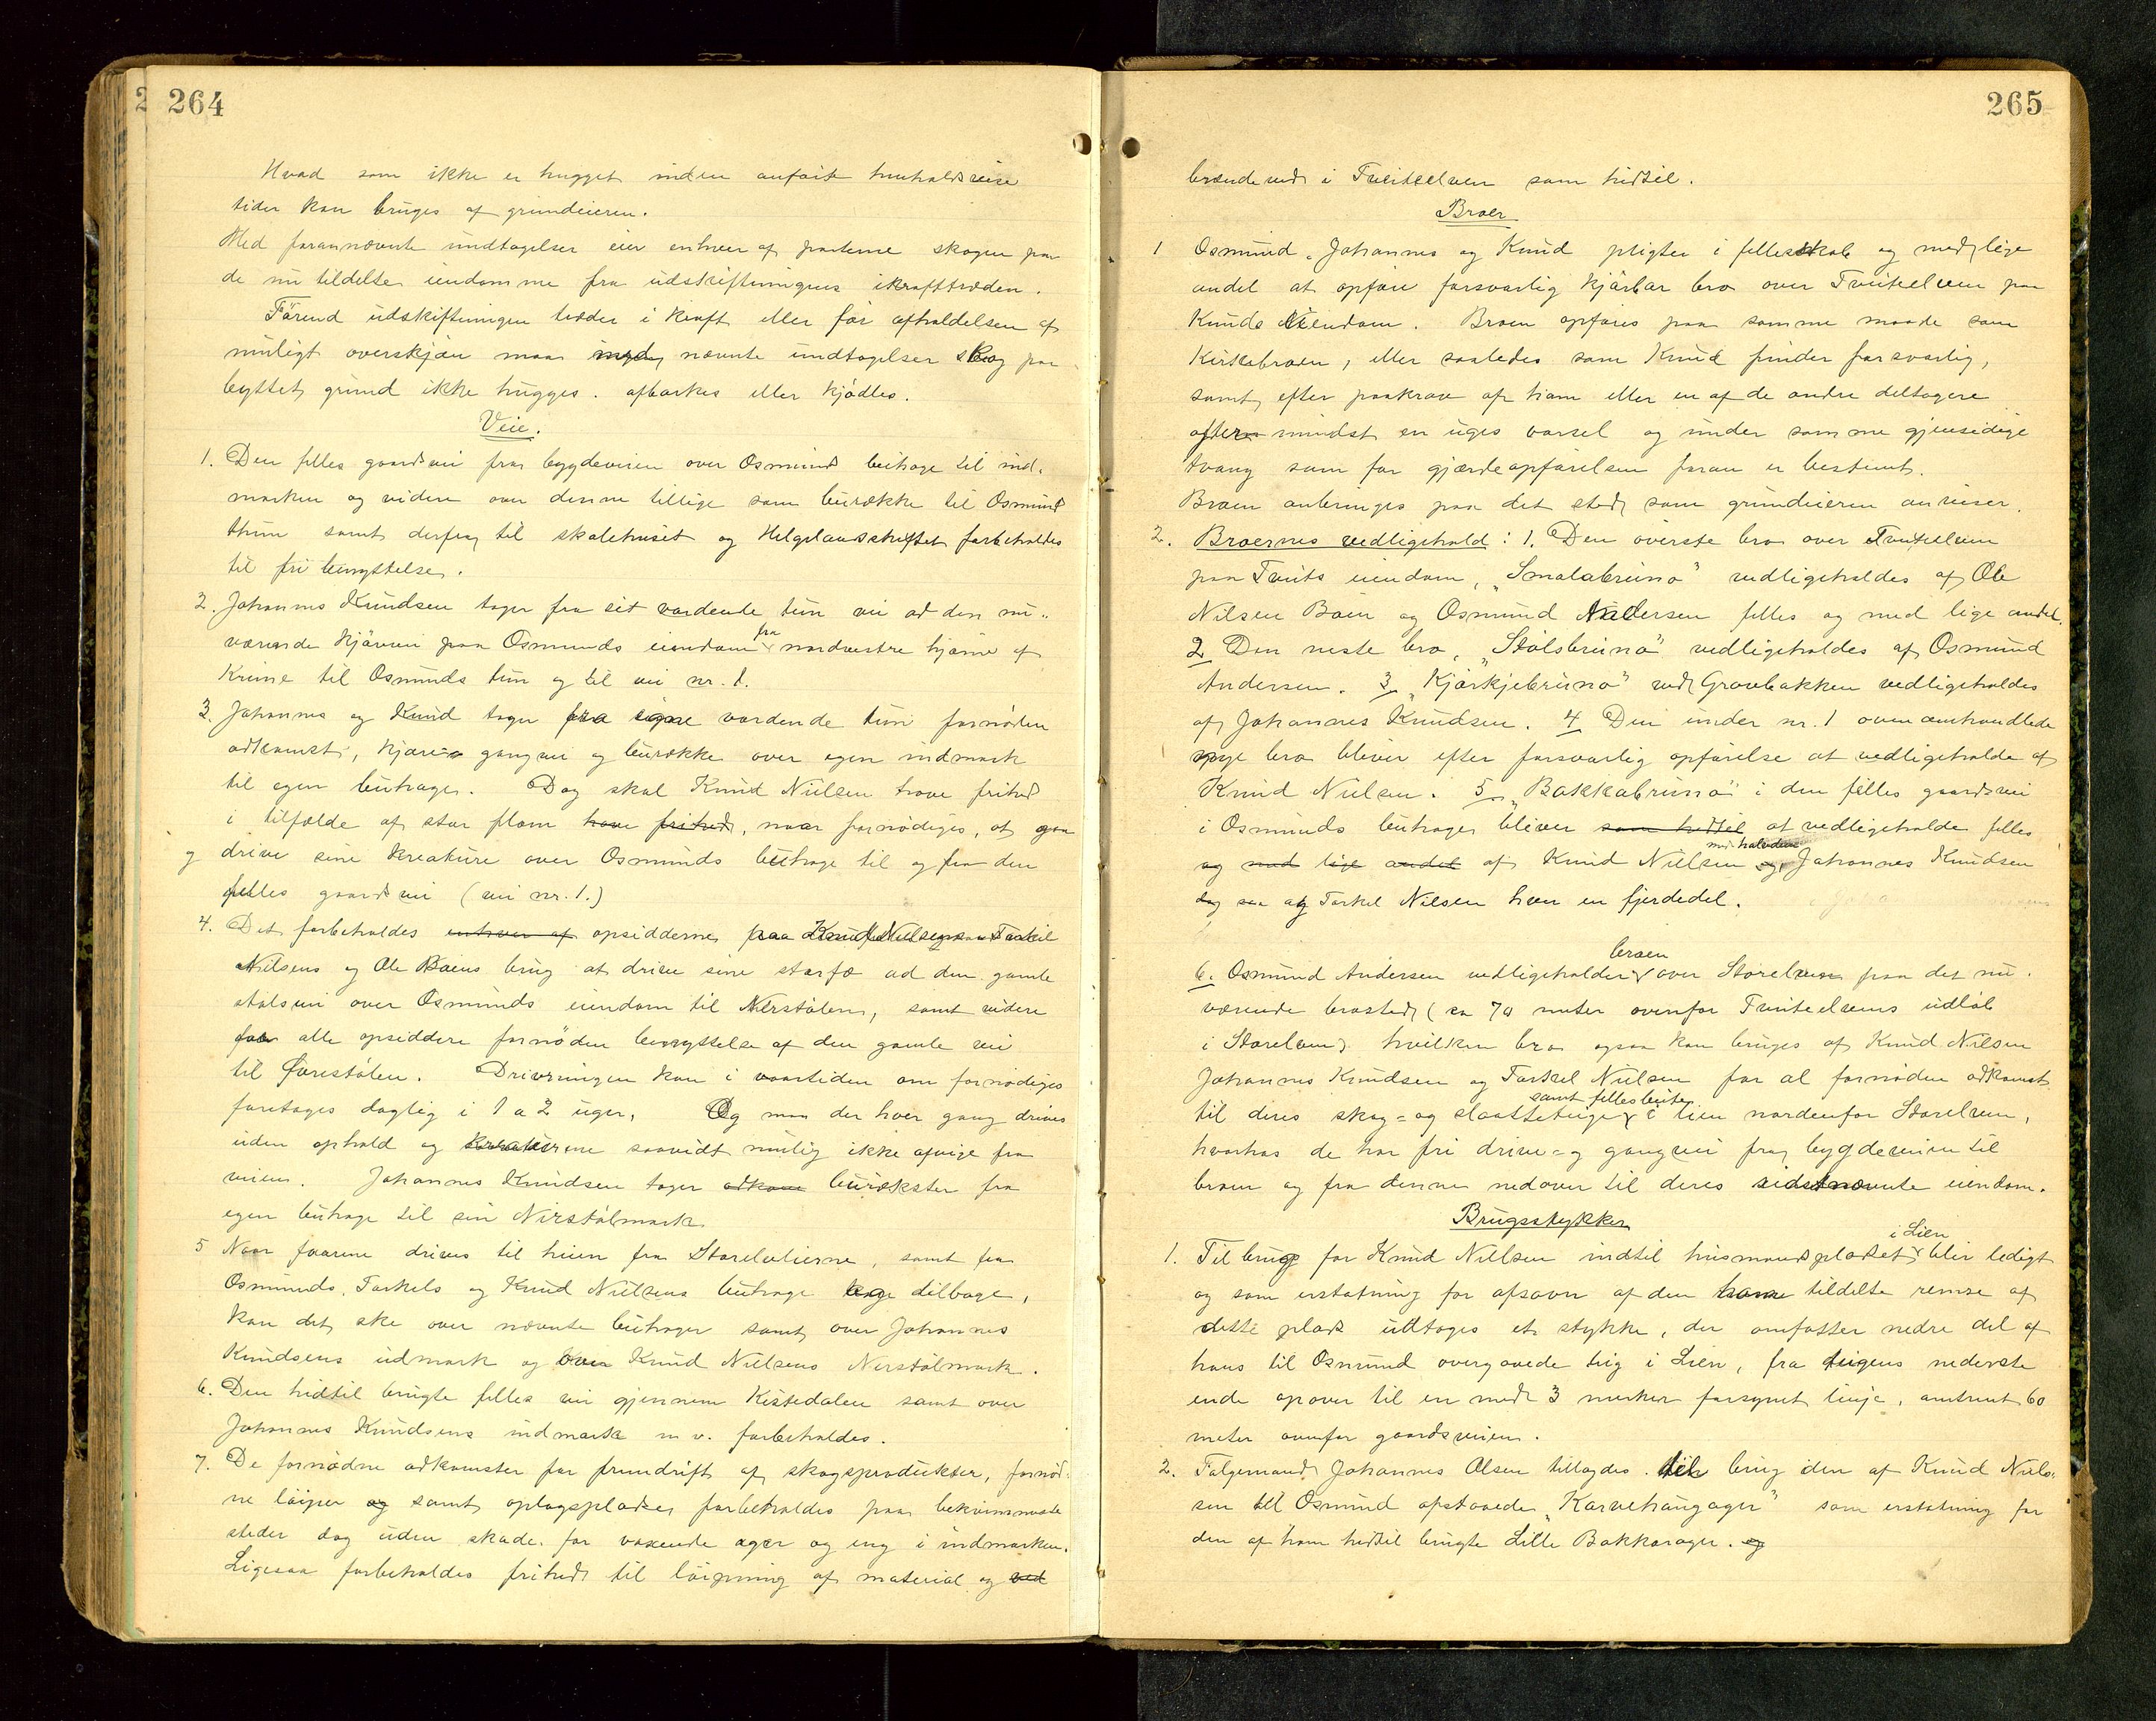 264
Hvad som ikke er hugget inden anførte henholdsvise
tider kan bruges af grundeieren.
Med forannævnte undtagelser eier enhver af parterne skogen paa
de nu tildelte eiendomme fra udskiftningens ikrafttræden.
Förend udskiftningen træder i kraft eller før afholdelsen af
muligt overskjøn maa med nævnte undtagelser skog paa
byttet grund ikke hugges, afbarkes eller kjödles.
Veie.
1. Den felles gaardsvei fra bygdeveien over Osmund beithage til ind-
marken og videre over denne tillige som burække til Osmund
thun samt derfra til skolehuset og Helgelandsskiftet forbeholdes
til fri benyttelse.
2. Johannes Knudsen tager fra sit vordende tun vei ad den nu-
værende kjörvei paa Osmunds eiendom fra nordvestre hjørne af
Krune til Osmunds tun og til vei nr. 1.
3. Johannes og Knud tager fra egne vordende tun fornøden
adkomst, kjøre- gangvei og burække over egen indmark
til egen beithage. Dog skal Knud Nielsen have frihed
i tilfælde af stor flom have frihed, naar fornødiges, at gaa
og drive sine kreature over Osmunds beithage til og fra den
felles gaardsvei (vei nr. 1.)
4. Det forbeholdes enhver af opsidderne paa Knud Nielsens Torkil
Nilsens og Ole Bøens brug at drive sine storfæ ad den gamle
stølsvei over Osmunds eiendom til Nerstølen, samt videre
faar alle opsiddere fornøden benyttelse af den gamle vei
til Øvrestølen. Drivningen kan i vaartiden om fornødiges
foretages daglig i 1 a 2 uger, Og maa der hver gang drives
uden ophold og kreaturerne saavidt mulig ikke afvige fra
veien. Johannes Knudsen tager adkom burækster fra
egen beithage til sin Nerstølmark.
5 Naar faarene drives til heien fra Storelvlierne, samt fra
Osmunds, Torkels og Knud Nielsens beithage tilbage,
kan det ske over nævnte beithager samt over Johannes
Knudsens udmark og over Knud Nielsens Nerstølmark.
6. Den hidtil brugte felles vei gjennem Kistedalen samt over
Johannes Knudsens indmark m. v. forbeholdes.
7. De fornødne adkomster for fremdrift af skogsprodukter, fornød-
ne løiper og samt oplagspladse, forbeholdes paa bekvemmeste
steder dog uden skade for voxende ager og eng i indmarken.
Ligesaa forbeholdes frihed til løipning af material og ved
265
brændeved i Tveiteelven som hidtil.
Broer
1 Osmund, Johannes og Knud pligter i fellesskab og med lige
andel at opføre forsvarlig kjørbar bro over Tveiteelven paa
Knuds eiendom. Broen opføres paa samme maade som
Kirkebroen, eller saaledes som Knud finder forsvarlig,
samt efter paakrav af ham eller en af de andre deltagere
efter mindst en uges varsel og under samme gjensidige
tvang som for gjærdeopførelsen foran er bestemt.
Broen anbringes paa det sted som grundeieren anviser.
2. Broernes vedligehold: 1. Den øverste bro over Tveiteelven
paa Tveits eiendom, "Smalabruno" vedligeholdes af Ole
Nilsen Bøen og Osmund Andersen felles og med lige andel.
2 Den neste bro, "Stölsbruno" vedligeholdes af Osmund
Andersen. 3 "Kjørkjebruno" ved Grovbakken vedligeholdes
af Johannes Knudsen. 4 Den under nr. 1 ovenomhandlede
nye bro bliver efter forsvarlig opførelse at vedligeholde af
Knud Nielsen. 5. "Bakkabruno" i den felles gaardsvei
i Osmunds beithage bliver som hidtil at vedligeholde felles
og med lige andel af Knud Nielsen med halvdelen og Johannes Knudsen
dog saa og Torkel Nilsen hver en fjerdedel.
6. Osmund Andersen vedligeholder broen over Storelven paa det nu-
værende brosted (ca 70 meter ovenfor Tveiteelvens udløb
i Storelven) hvilken bro ogsaa kan bruges af Knud Nilsen
Johannes Knudsen og Torkel Nielsen for al fornøden adkomst
til deres skog- og slaatteteige samt fellesbeite i lien nordenfor Storelven,
hvorhos de har fri drive- og gangvei fra bygdeveien til
broen og fra denne nedover til deres sidstnævnte eiendom.
Brugsstykker
1. Til brug for Knud Nielsen indtil husmandspladset i Lien blir ledigt
og som erstatning for afsavn af den ham tildelte remse af
dette plads udtages et stykke, der omfatter nedre del af
hans til Osmund overgaaede teig i Lien, fra teigens nederste
ende opover til en med 3 merker forsynet linje, omtrent 60
meter ovenfor gaardsveien.
2. Følgemand Johannes Olsen tillagdes til brug den af Knud Niel-
sen til Osmund afstaaede "Karvehaugager" som erstatning for
den af ham hidtil brugte Lille Bakkarager. og